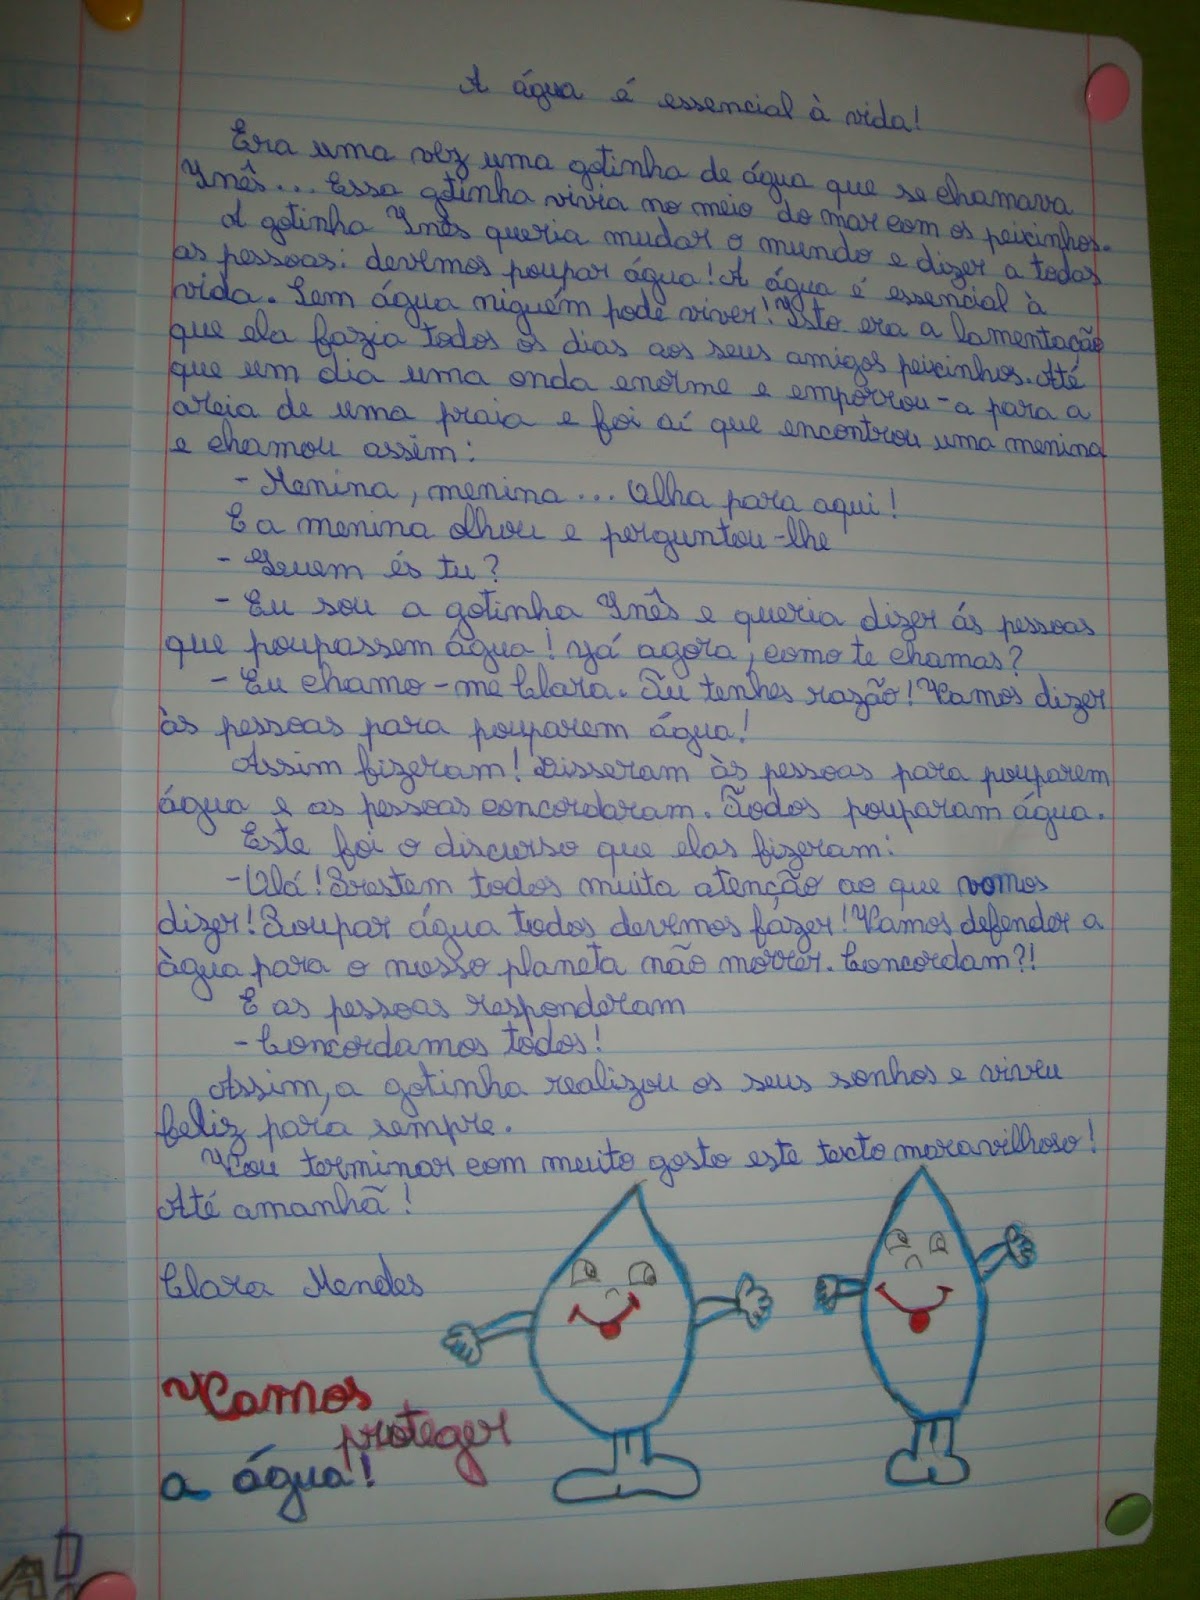 A água é essencial à vida!
Era uma vez uma gotinha de água que se chamava
Inês... Essa gotinha vivia no meio do mar com os peixinhos.
A gotinha Inês queria mudar o mundo e dizer a todas
as pessoas: devemos poupar água! A água é essencial à
vida. Sem água niguém pode viver! Isto era a lamentação
que ela fazia todos os dias aos seus amigos peixinhos. Até
que um dia uma onda enorme e emporrou-a para a
areia de uma praia e foi aí que encontrou uma menina
e chamou assim:
- Menina, menina... Olha para aqui!
E a menina olhou e perguntou-lhe
- Quem és tu?
- Eu sou a gotinha Inês e queria dizer ás pessoas
que poupassem água! Já agora, como te chamas?
- Eu chamo-me Clara. Tu tenhes razão! Vamos dizer
às pessoas para pouparem água!
Assim fizeram! Disseram às pessoas para pouparem
água e as pessoas concordaram. Todos pouparam água.
Este foi o discurso que elas fizeram:
- Olá! Prestem todos muita atenção ao que vamos
dizer! Poupar água todos devemos fazer! Vamos defender a
àgua para o nosso planeta não morrer. Concordam?!
E as pessoas responderam
- Concordamos todos!
Assim, a gotinha realizou os seus sonhos e viveu
feliz para sempre.
Vou terminar com muito gosto este texto maravilhoso!
Até amanhã!
Clara Mendes
Vamos
proteger
a água!